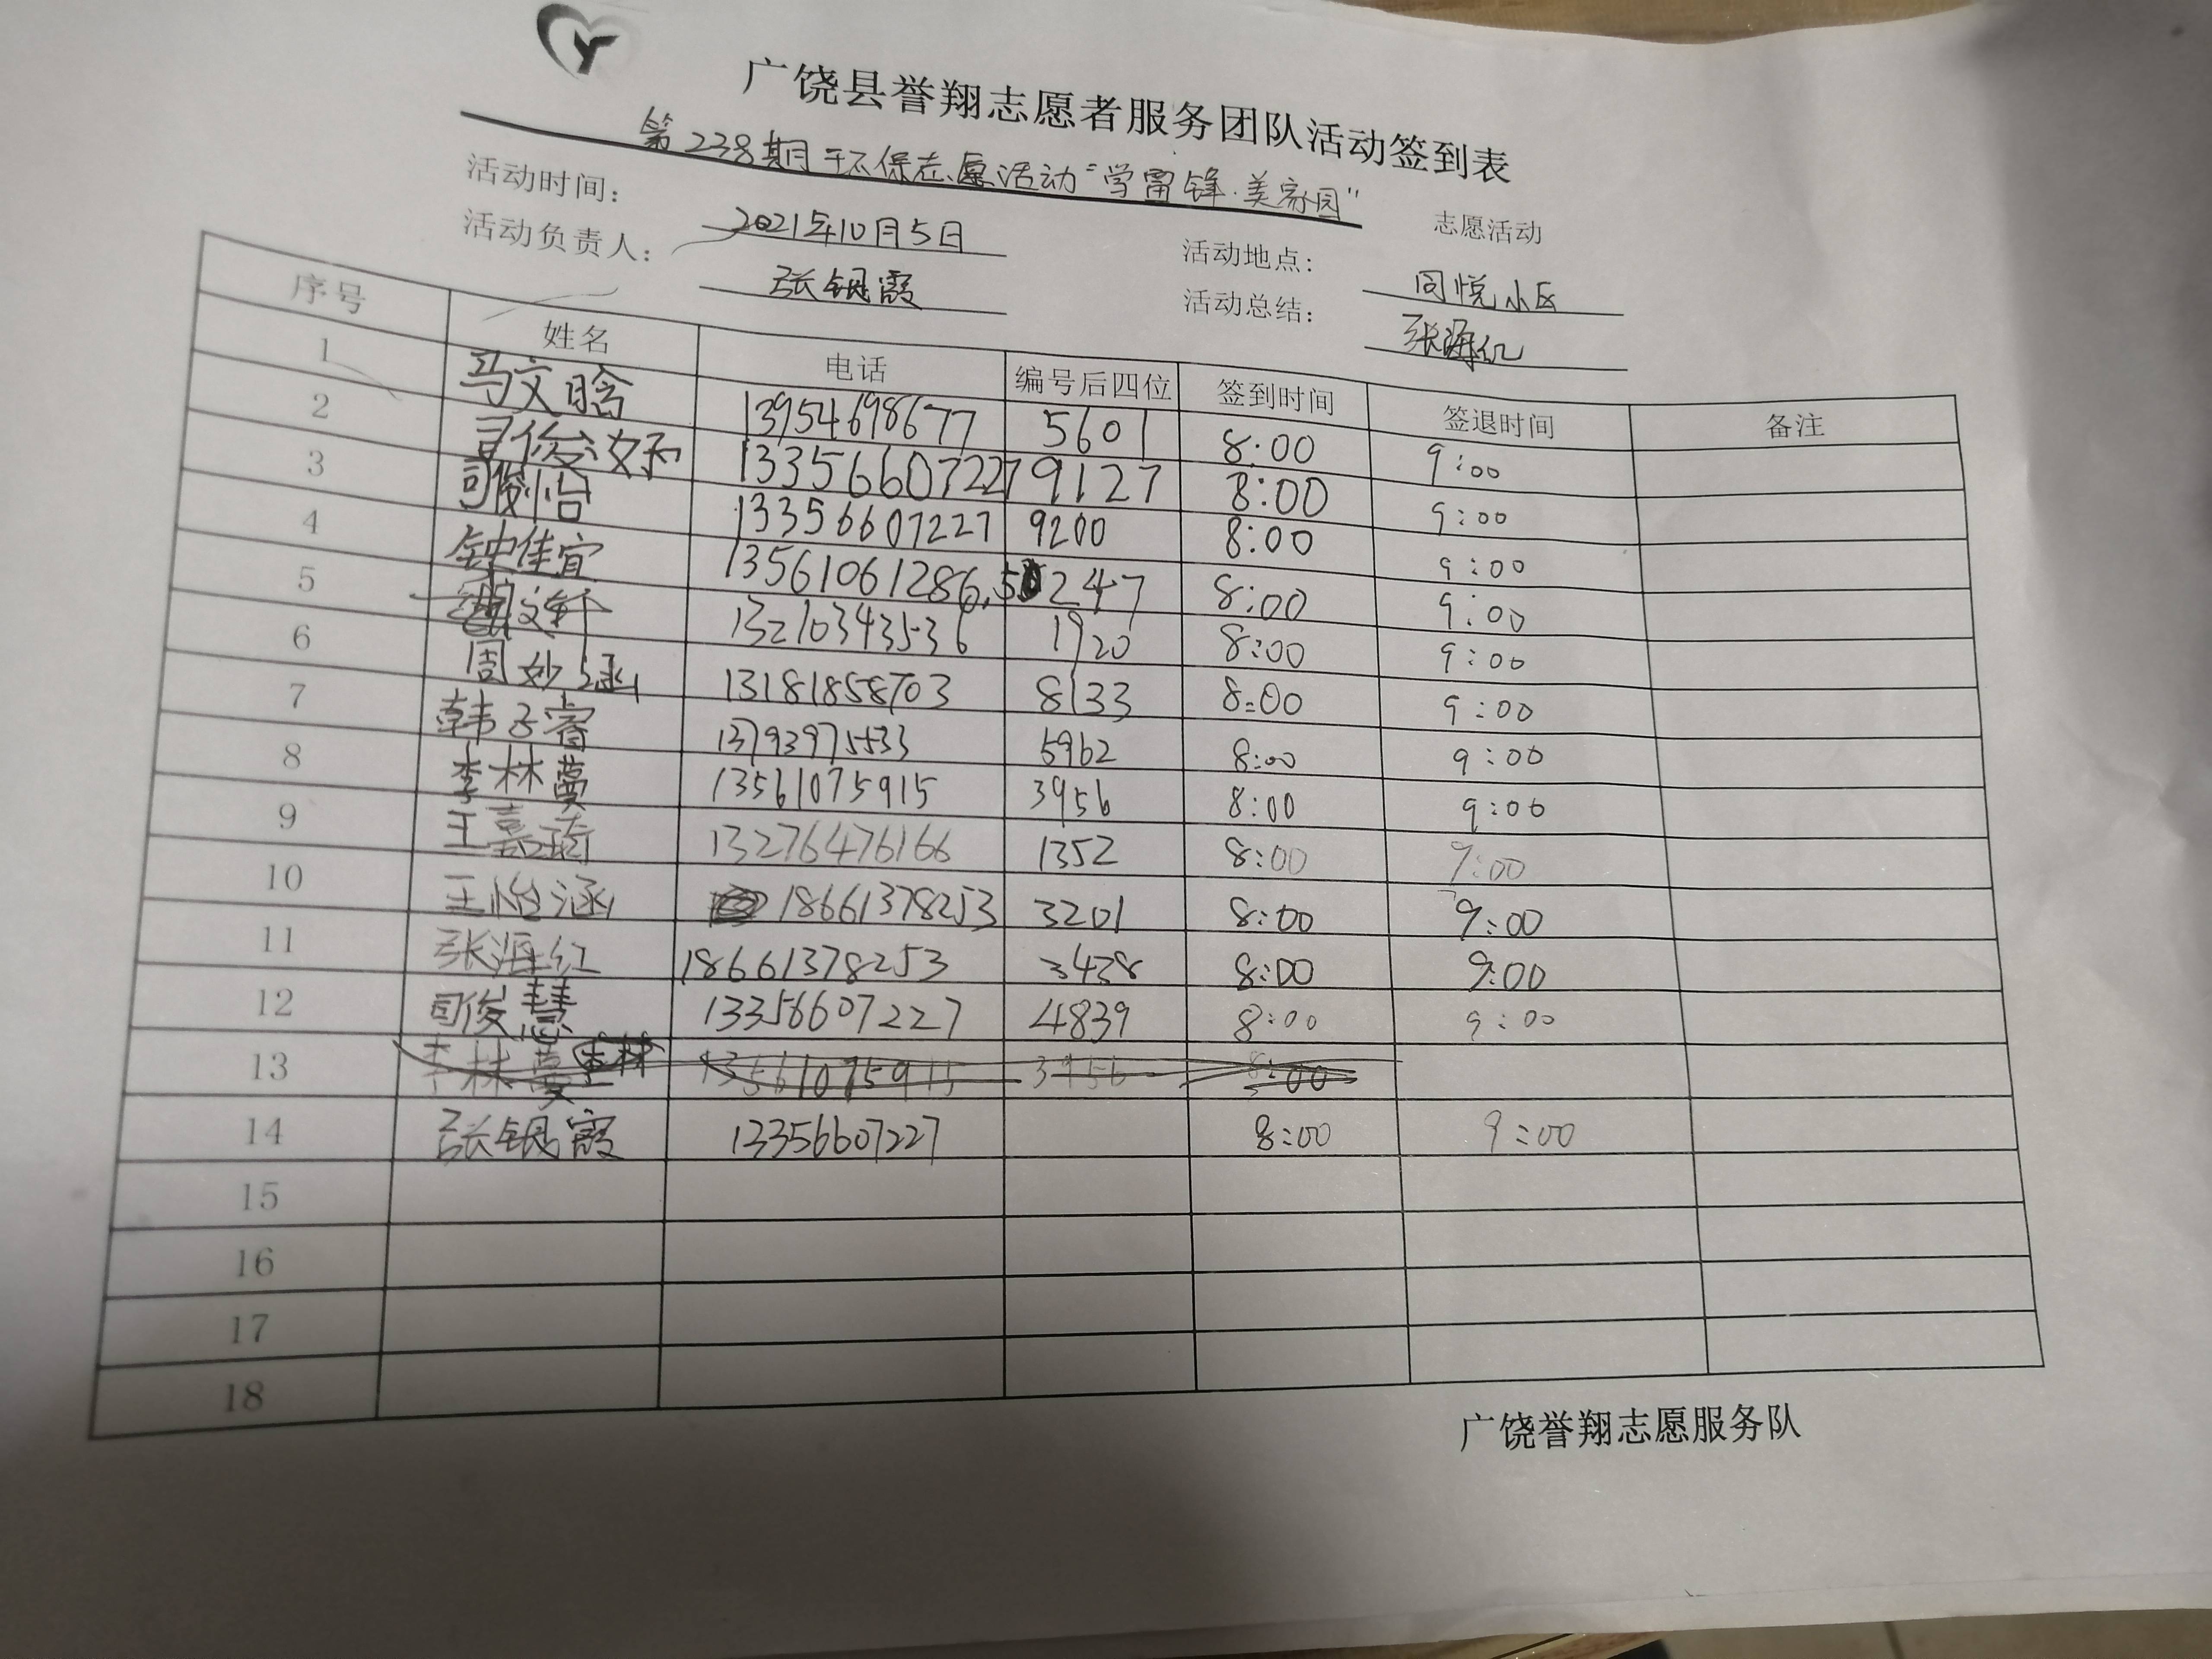 广饶县誉翔志愿者服务团队活动签到表
第238期环保志愿活动"学雷锋·美家园" 志愿活动
活动时间: 2021年10月5日 活动地点: 同悦小区
活动负责人: 张银霞 活动总结: 张海红
序号 姓名 电话 编号后四位 签到时间 签退时间 备注
1 马文晗 13954698677 5601 8:00 9:00
2 司俊好 13356607227 9127 8:00 9:00
3 司俊怡 13356607227 9200 8:00 9:00
4 钟佳宜 13561061286 5247 8:00 9:00
5 文轩 13210343536 1920 8:00 9:00
6 周妙涵 13181858703 8133 8:00 9:00
7 韩子睿 13793975533 5962 8:00 9:00
8 李林蔓 13561075915 3956 8:00 9:00
9 王嘉琦 13276476166 1352 8:00 9:00
10 王怡涵 18661378253 3201 8:00 9:00
11 张海红 18661378253 3438 8:00 9:00
12 司俊慧 13356607227 4839 8:00 9:00
13 李林蔓 李林 13561075915 3956 8:00
14 张银霞 13356607227 8:00 9:00
15
16
17
18
广饶誉翔志愿服务队